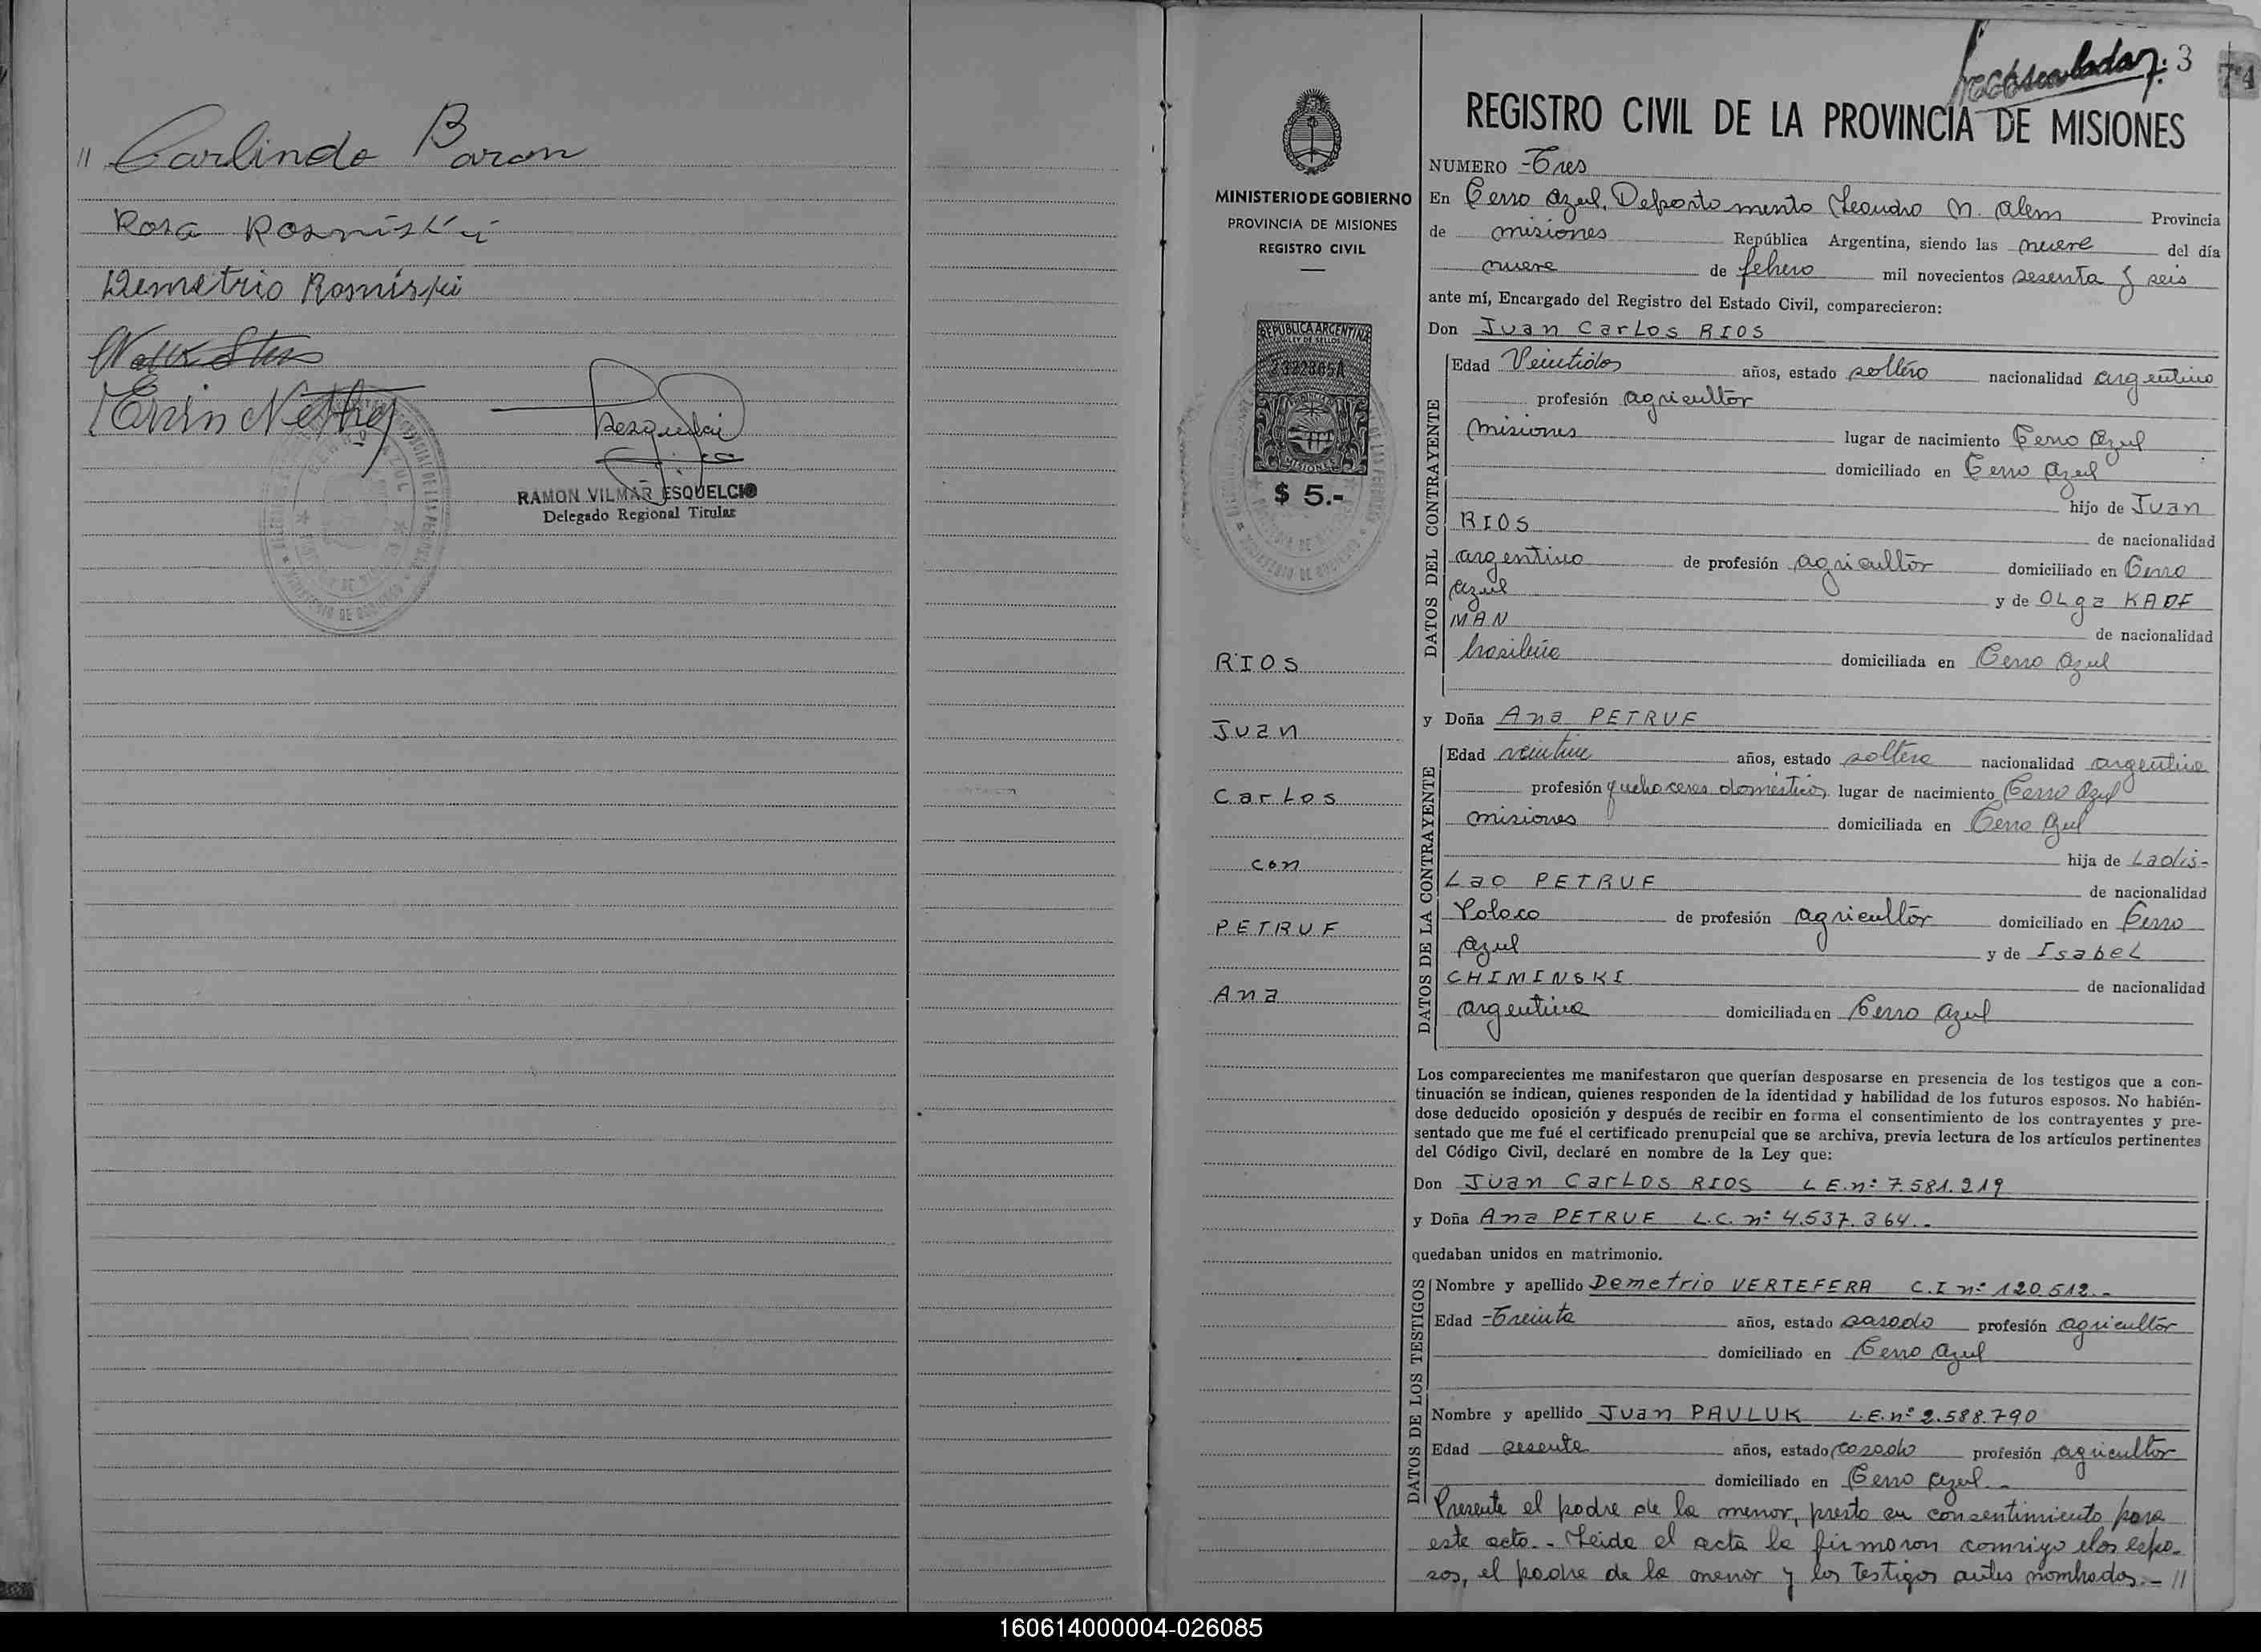 // Carlindo Baron
Rosa Rosniski
Demetrio Rosniski
Ervin
RAMON VILMAR ESQUELCIO
Delegado Regional Titular
3
74
REGISTRO CIVIL DE LA PROVINCIA DE MISIONES
MINISTERIO DE GOBIERNO
PROVINCIA DE MISIONES
REGISTRO CIVIL
REPUBLICA ARGENTINA
LEY DE SELLOS
MISIONES
$ 5.-
RIOS
Juan
Carlos
con
PETRUF
Ana
NUMERO -Tres
En Cerro Azul, Departamento Leandro N. Alem Provincia
de misiones República Argentina, siendo las nueve del día
nueve de febrero mil novecientos sesenta y seis
ante mí, Encargado del Registro del Estado Civil, comparecieron:
Don Juan Carlos RIOS
DATOS DEL CONTRAYENTE
Edad Veintidos años, estado soltero nacionalidad argentino
profesión agricultor
misiones lugar de nacimiento Cerro Azul
domiciliado en Cerro Azul
hijo de Juan
RIOS de nacionalidad
argentino de profesión agricultor domiciliado en Cerro
Azul y de OLga KAUF
MAN de nacionalidad
brasileña domiciliada en Cerro Azul
y Doña Ana PETRUF
DATOS DE LA CONTRAYENTE
Edad años, estado soltera nacionalidad argentina
profesión quehaceres domésticos lugar de nacimiento Cerro Azul
misiones domiciliada en Cerro Azul
hija de Ladis-
Lao PETRUF de nacionalidad
Polaco de profesión agricultor domiciliado en Cerro
Azul y de Isabel
CHIMINSKI de nacionalidad
argentina domiciliada en Cerro Azul
Los comparecientes me manifestaron que querían desposarse en presencia de los testigos que a con-
tinuación se indican, quienes responden de la identidad y habilidad de los futuros esposos. No habién-
dose deducido oposición y después de recibir en forma el consentimiento de los contrayentes y pre-
sentado que me fué el certificado prenupcial que se archiva, previa lectura de los artículos pertinentes
del Código Civil, declaré en nombre de la Ley que:
Don Juan CarLos RIOS L E. nº 7.581.219
y Doña Ana PETRUF L.C. nº 4.537.364.-
quedaban unidos en matrimonio.
DATOS DE LOS TESTIGOS
Nombre y apellido Demetrio VERTEFERA C.I nº 120.512.-
Edad -Treinta años, estado casado profesión agricultor
domiciliado en Cerro Azul
Nombre y apellido Juan PAULUK L.E. nº 2.588.790
Edad sesenta años, estado casado profesión agricultor
domiciliado en Cerro Azul.-
Presente el padre de la menor, presto su consentimiento para
este acto.- Leida el acta la firmaron conmigo los espo-
sos, el padre de la menor y los testigos antes nombrados.- //
160614000004-026085